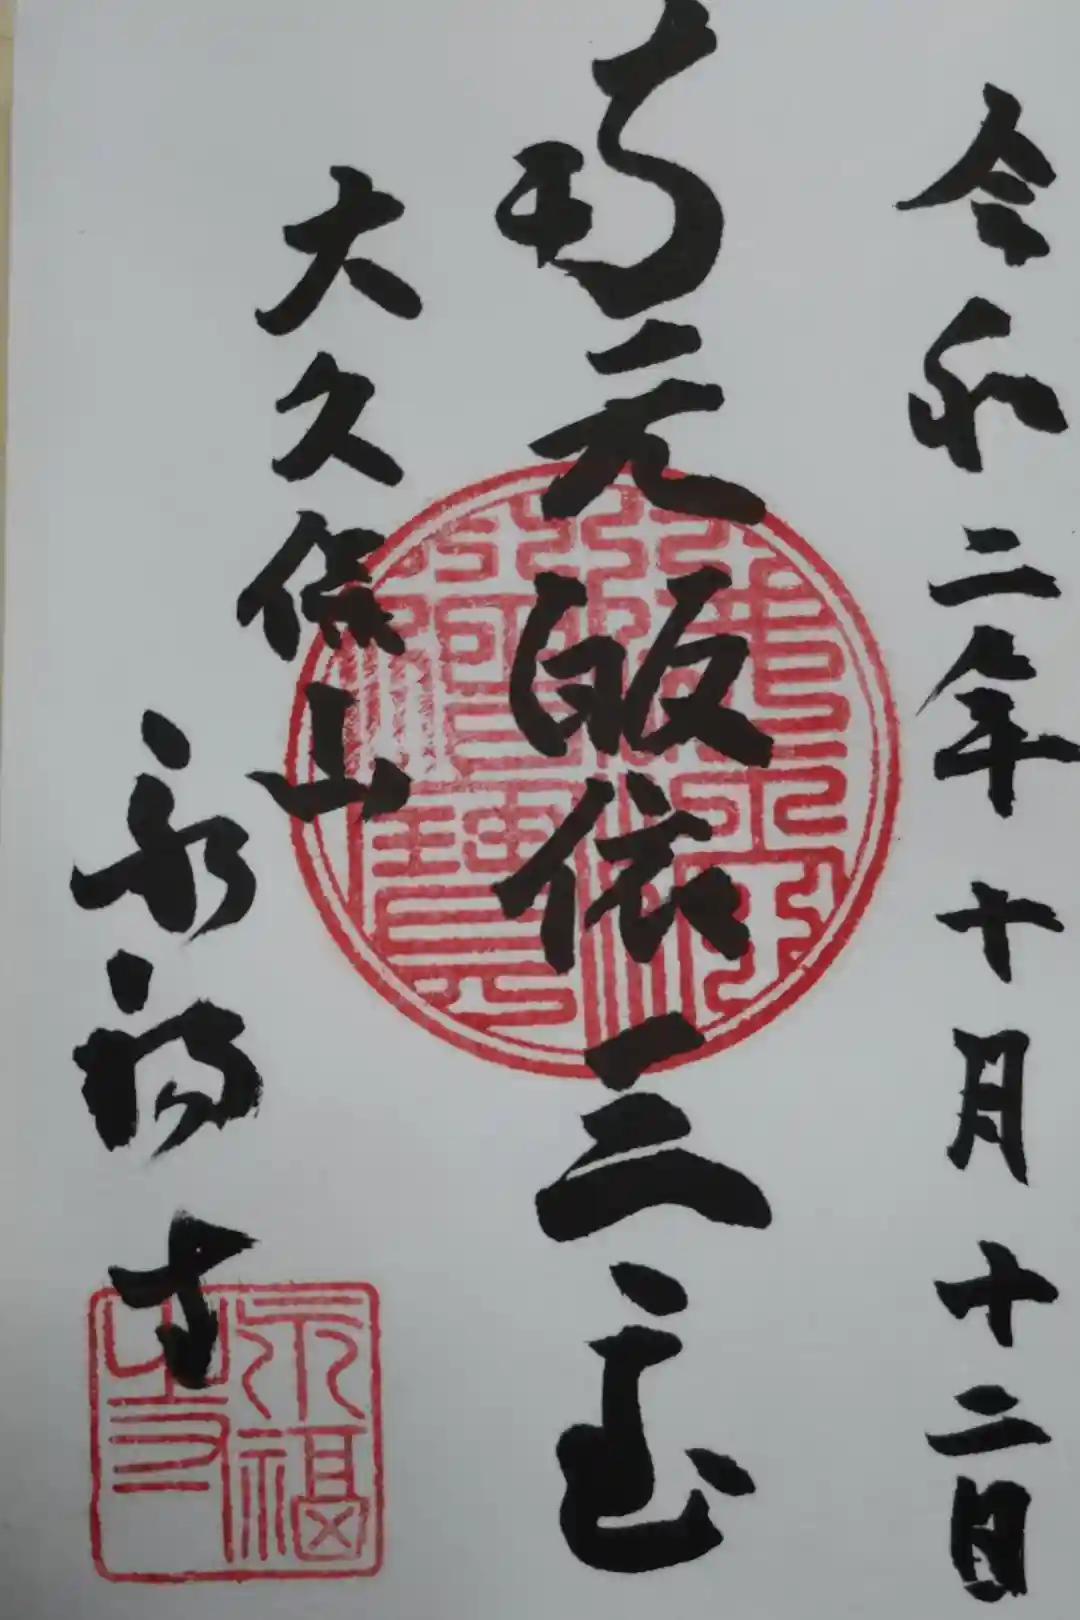 令和二年十月十二日
南无皈依三宝
大久保山
永福寺
永福
寺印